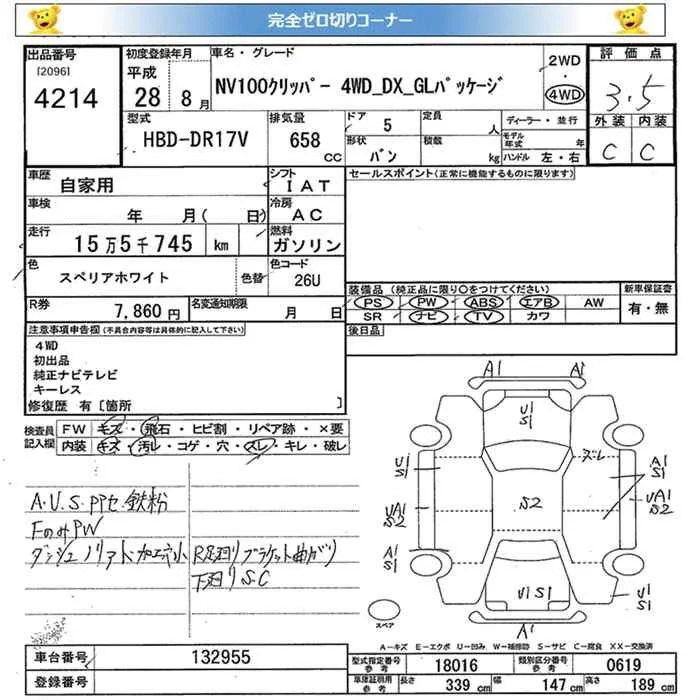 完全ゼロ切りコーナー
出品番号
[2096]
4214
初度登録年月
平成
28 8月
車名・グレード
NV100クリッパー 4WD_DX_GLパッケージ
2WD
・
4WD
評価点
3.5
外装 内装
C C
型式
HBD-DR17V
排気量
658
CC
ドア 5
形状 バン
定員 人
積載 kg
ディーラー・並行
モデル年式 年
ハンドル 左・右
車歴
自家用
シフト
IAT
車検
年 月( 日)
冷房
AC
走行
15万5千745 km
燃料
ガソリン
色
スペリアホワイト
色替
色コード
26U
R券
7,860円
名変通知期限
月 日
セールスポイント(正常に機能するものに限ります)
装備品(純正品に限り○をつけてください)
PS PW ABS エアB AW
SR ナビ TV カワ
新車保証書
有・無
後日品
注意事項申告欄(不具合内容等は具体的に記入して下さい)
4WD
初出品
純正ナビテレビ
キーレス
修復歴 有[箇所 ]
検査員記入欄
FW キズ・飛石・ヒビ割・リペア跡・×要
内装 キズ・汚レ・コゲ・穴・スレ・キレ・破レ
A.U.S.PPセ.鉄粉
FのみPW
ダッシュノリアト加工ネ小
R足廻リブラケット曲がり
下廻リS.C
A1 A1
U1
S1
ズレ
U1
S1
A1
S1
UA1
S2
S2
UA1
S2
A1
S1
U1S1
U1
S1
A1
スペア
A-キズ E-エクボ U-凹み W-補修跡 S-サビ C-腐食 XX-交換済
車台番号 132955
登録番号
型式指定番号 参考 18016
類別区分番号 参考 0619
車庫証明用 参考
長さ 339 cm
幅 147 cm
高さ 189 cm